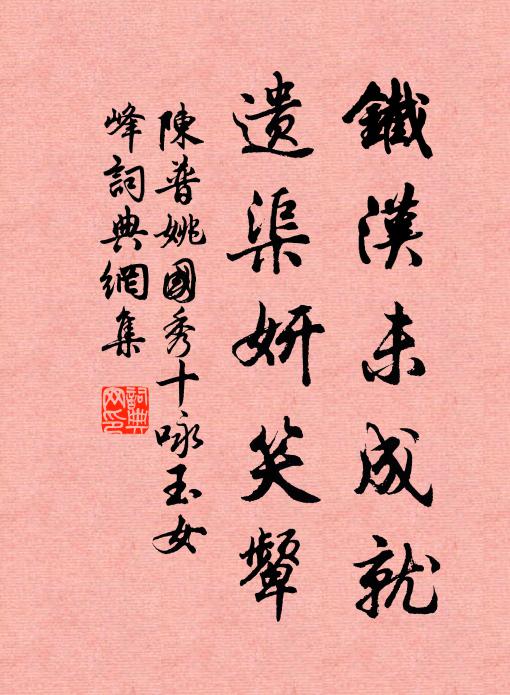 鐵漢未成就
遺渠妍笑顰
陳普姚國秀十咏玉女
峰詞典網集
詞典
网印